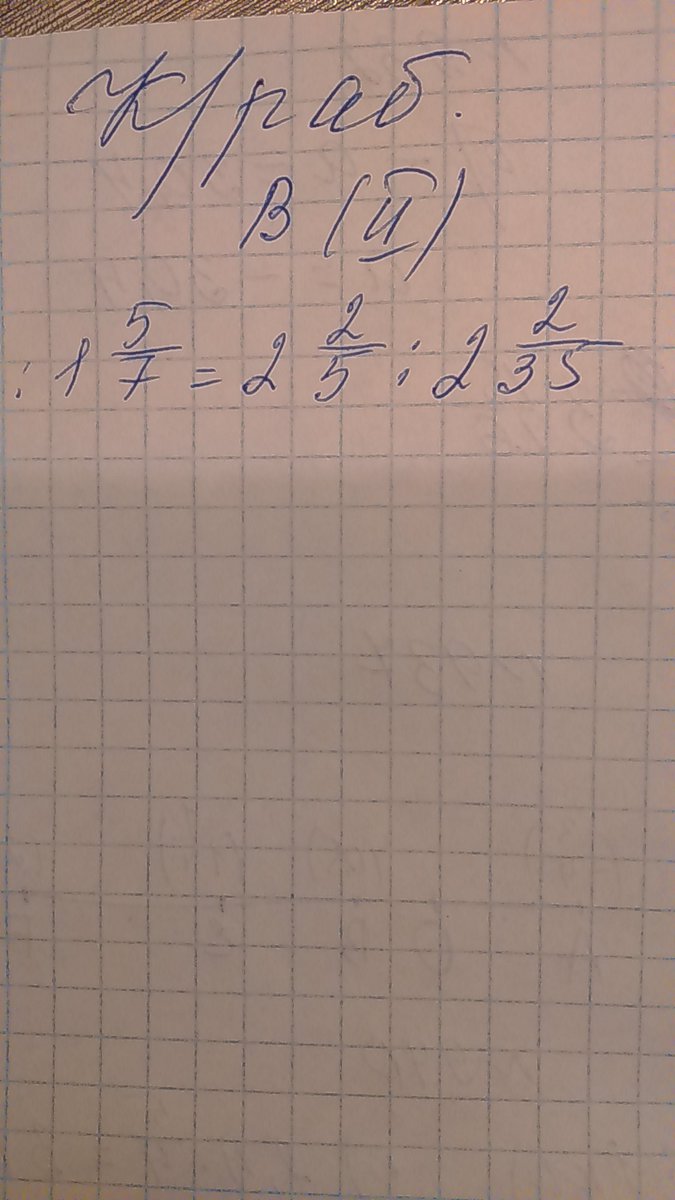 К/раб.
В (II)
: 1 5/7 = 2 2/5 : 2 2/35